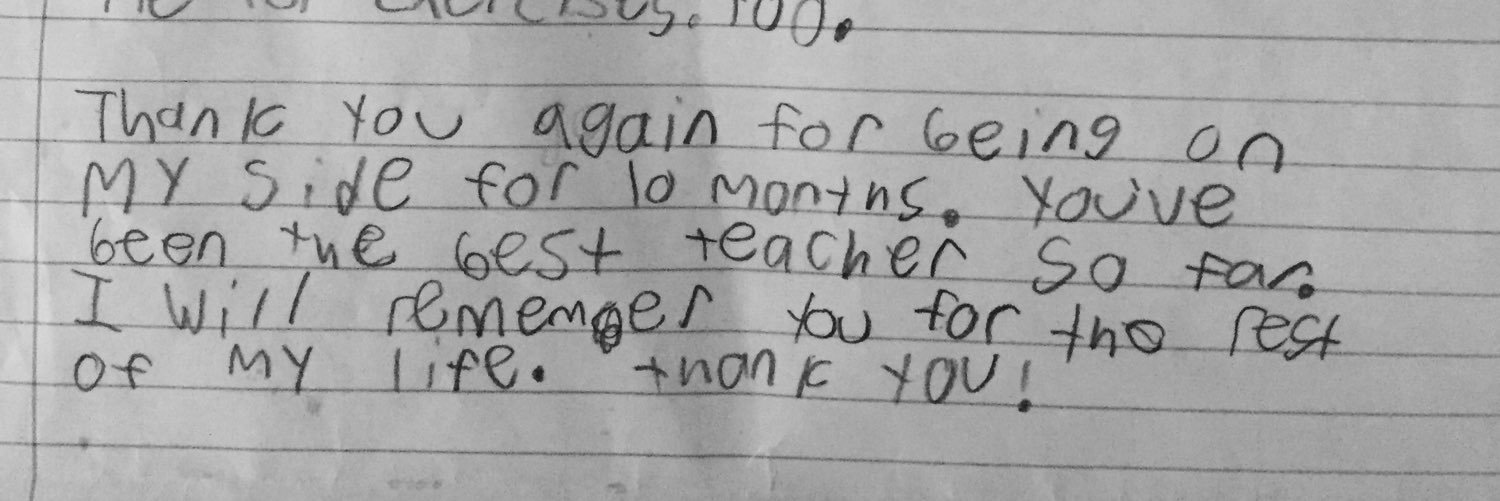 for exercises. too.
Thank you again for being on
my side for 10 months. You've
been the best teacher so far.
I will remember you for the rest
of my life. thank you!